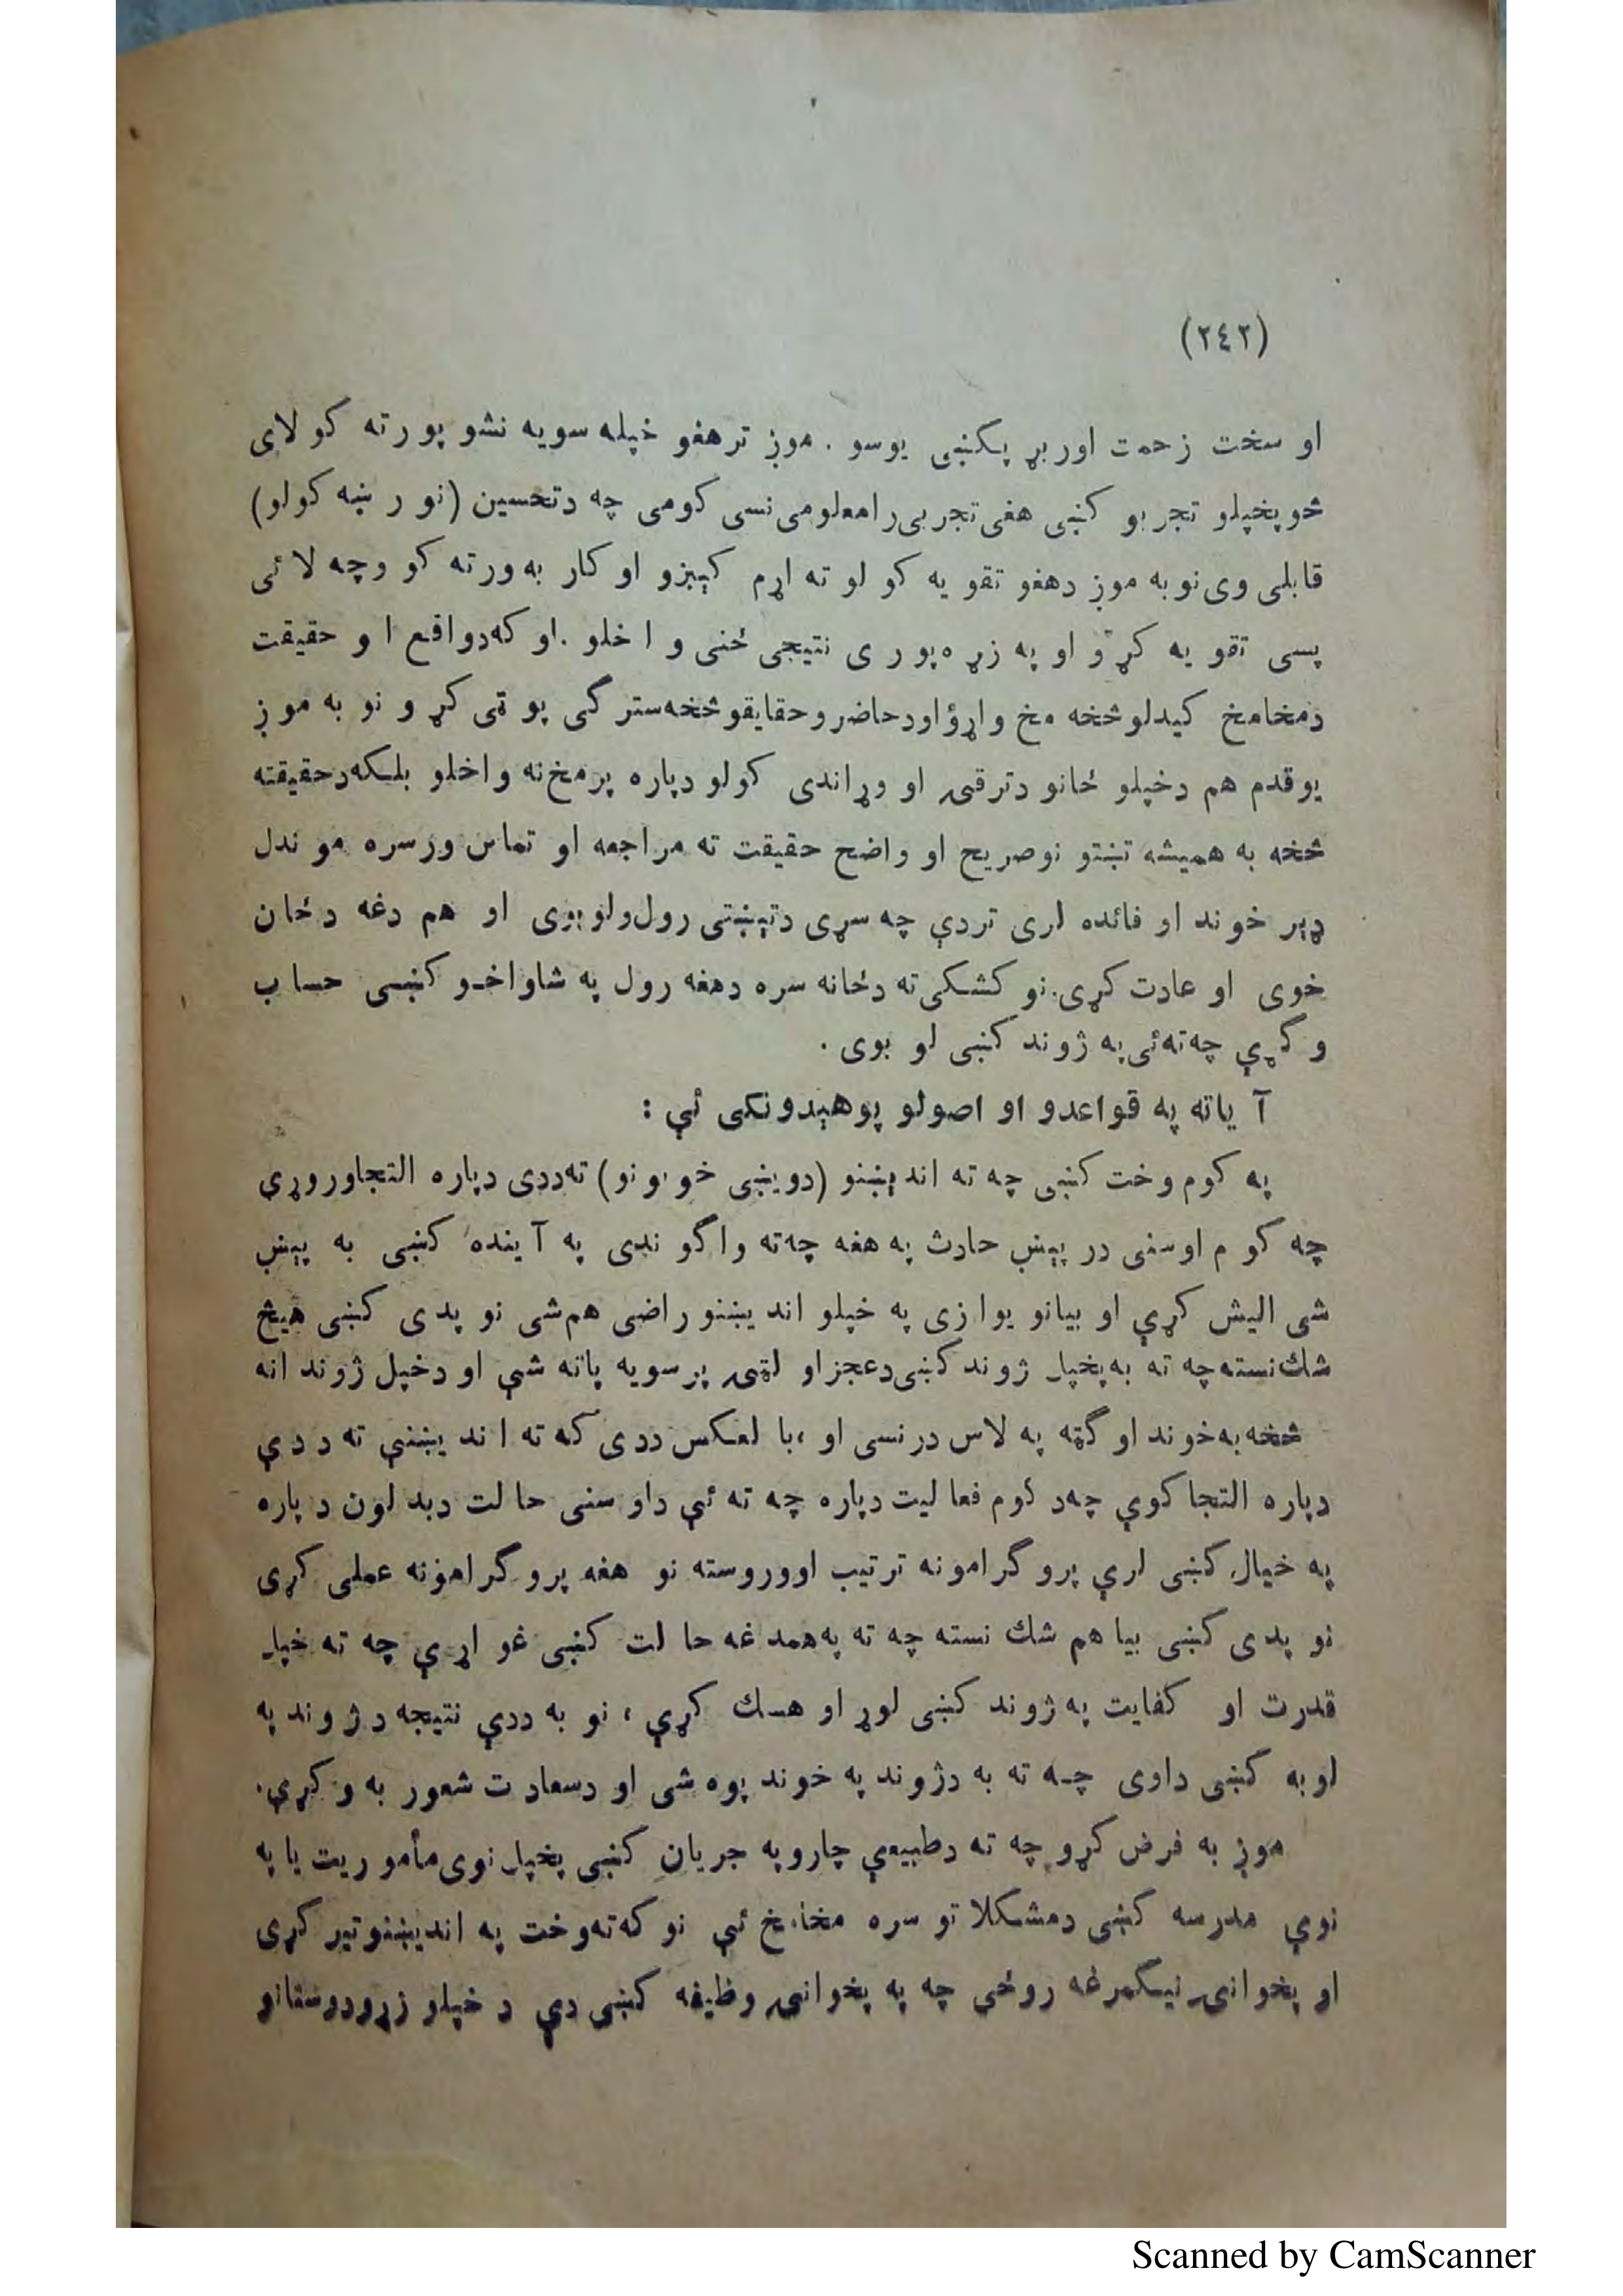 (٢٤٢)
او سخت زحمت اوربړ پکښی یوسو . موږ ترهغو خپله سویه نشو پورته کولای
څو پخپلو تجربو کښی هغی تجربی رامعلومی نسی کومی چه دتحسین (نور ښه کولو)
قابلی وی نو به موږ دهغو تقویه کولو ته اړم کېږو او کار به ورته کو وچه لائی
پسی تقویه کړو او په زړه پوری نتیجی ځنی واخلو . او که دواقع او حقیقت
دمخامخ کیدلو څخه مخ واړؤ اودحاضرو حقایقو څخه سترگی پوټی کړو نو به موږ
یوقدم هم دخپلو ځانو دترقی او وړاندی کولو دپاره پرمخ نه واخلو بلکه دحقیقته
څخه به همیشه تښتو نوصریح او واضح حقیقت ته مراجعه او تماس ورسره موندل
ډېر خوند او فائده لری تردې چه سړی دتېښتی رول ولوبوی او هم دغه دځان
خوی او عادت کړی. نو کشکی ته دځانه سره دهغه رول په شاواخو کښی حساب
وکړې چه ته ئی په ژوند کښی لوبوی .
آ یاته په قواعدو او اصولو پوهېدونکی ئې :
په کوم وخت کښی چه ته اندېښنو (دویښی خوبونو) ته ددی دپاره التجاوروړې
چه کوم اوسنی درپېښ حادث په هغه چه ته واگوندی په آینده کښی به پېښ
شی الیش کړې او بیانو یوازی په خپلو اندیښنو راضی هم شی نو پدی کښی هیڅ
شك نسته چه ته به پخپل ژوند کښی دعجزاو لټی پرسویه پاته شې او دخپل ژوند انه
څخه به خوند او گټه په لاس درنسی او ، با لعکس ددی که ته اندیښنې ته ددې
دپاره التجا کوې چه د کوم فعالیت دپاره چه ته ئې داوسنی حالت دبدلون دپاره
په خیال کښی لرې پروگرامونه ترتیب اووروسته نو هغه پروگرامونه عملی کړی
نو پدی کښی بیا هم شك نسته چه ته په همدغه حالت کښی غواړې چه ته خپل
قدرت او کفایت په ژوند کښی لوړ او هسك کړې ، نو به ددې نتیجه دژوند په
لوبه کښی داوی چه ته به دژوند په خوند پوه شی او دسعادت شعور به وکړې.
موږ به فرض کړو چه ته دطبیعې چارو په جریان کښی پخپل نوی مأموریت یا په
نوې مدرسه کښی دمشکلاتو سره مخامخ ئې نو که ته وخت په اندیښنو تیر کړی
او پخوانی نیکمرغه روځی چه په پخوانی وظیفه کښی دې د خپلو زړودوستانو
Scanned by CamScanner